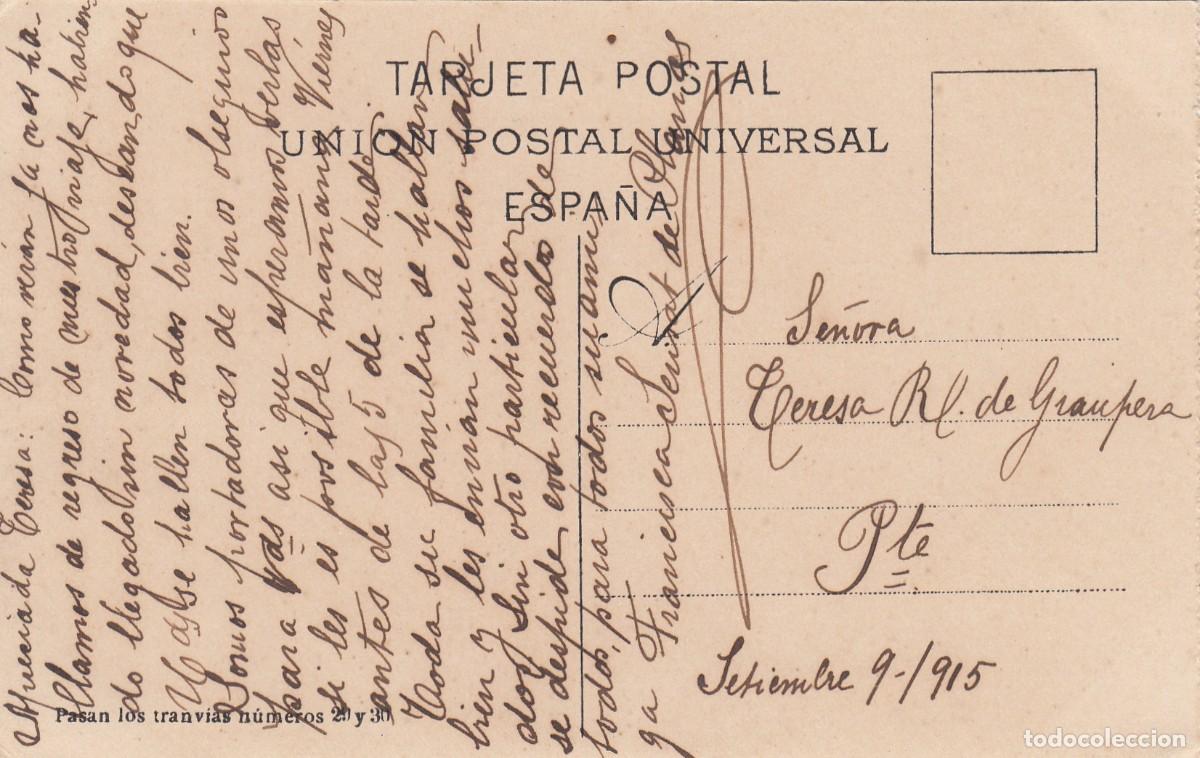 TARJETA POSTAL
UNIÓN POSTAL UNIVERSAL
ESPAÑA
Apreciada Teresa: Como verán ya nos ha-
llamos de regreso de nuestro viaje, habien-
do llegado sin novedad, deseando que
Vdas se hallen todos bien.
Somos portadoras de unos obsequios
para Vdas asi que esperamos verlas
si les es posible mañana Viernes
antes de las 5 de la tarde.
Toda su familia se hallan
bien y les envian muchos salu-
dos. Sin otro particular
se despide con recuerdos de
todos, para todos su ami-
ga Francisca Senat de
Señora
Teresa Rl. de Graupera
Pte
Setiembre 9-/915
Pasan los tranvías números 29 y 30
todocoleccion